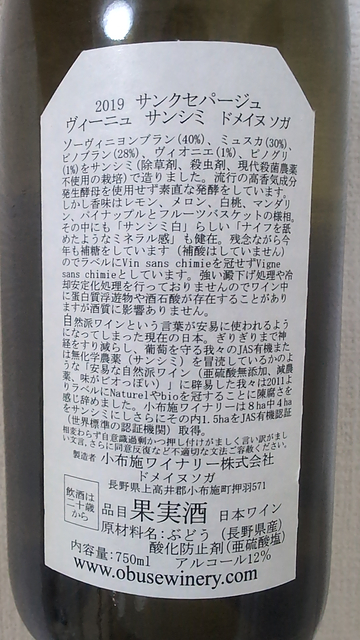 2019 サンクセパージュ
ヴィーニュ サンシミ ドメイヌ ソガ
ソーヴィニヨンブラン(40%)、ミュスカ(30%)、
ピノブラン(28%)、ヴィオニエ(1%)、ピノグリ
(1%)をサンシミ（除草剤、殺虫剤、現代殺菌農薬
不使用の栽培）で造りました。流行の高香気成分
発生酵母を使用せず素直な発酵をしています。
しかし香味はレモン、メロン、白桃、マンダリ
ン、パイナップルとフルーツバスケットの様相。
その中にも「サンシミ白」らしい「ナイフを舐
めたようなミネラル感」も健在。残念ながら今
年も補糖をしています（補酸はしていません）
のでラベルにVin sans chimieを冠せずVigne
sans chimieとしています。強い澱下げ処理や冷
却安定化処理を行っておりませんのでワイン中
に蛋白質浮遊物や酒石酸が存在することがあり
ますが酒質に影響ありません。
自然派ワインという言葉が安易に使われるよう
になってしまった現在の日本。ぎりぎりまで神
経をすり減らし、葡萄を守る我々のJAS有機また
は無化学農薬（サンシミ）を冒涜しているかのよ
うな「安易な自然派ワイン（亜硫酸無添加、減農
薬、味がビオっぽい）」に辟易した我々は2011よ
りラベルにNaturelやbioを冠することに陳腐さを
感じ辞めました。小布施ワイナリーは8ha中4ha
をサンシミにしさらにその内1.5haをJAS有機認証
（世界標準の認証機関）取得。
相変わらず自意識過剰かつ押し付けがましく言い訳がまし
い文言、さらに同意反復など不適切な文法ご容赦ください。
製造者 小布施ワイナリー株式会社
ドメイヌソガ
長野県上高井郡小布施町押羽571
飲酒は
二十歳
から
品目 果実酒 日本ワイン
原材料名：ぶどう（長野県産）
酸化防止剤（亜硫酸塩）
内容量：750ml アルコール12%
www.obusewinery.com